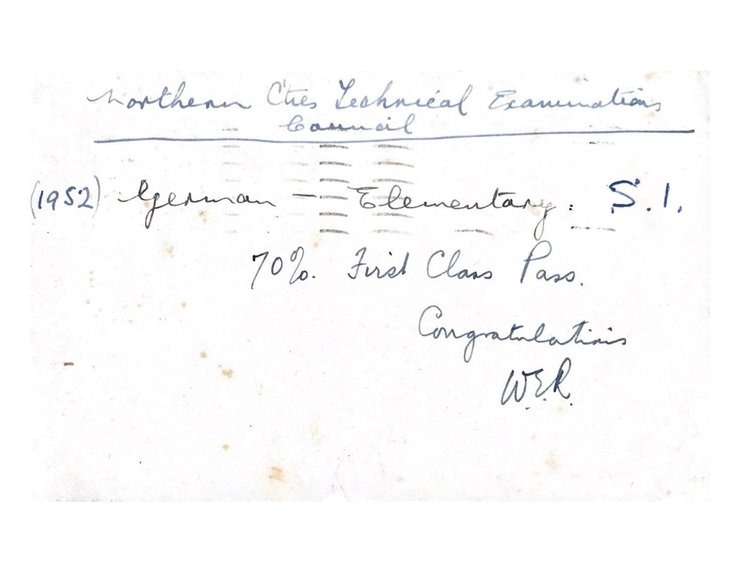 Northern Cties Technical Examinations
Council
(1952) German — Elementary: S.1.
70%. First Class Pass.
Congratulations
W.E.R.